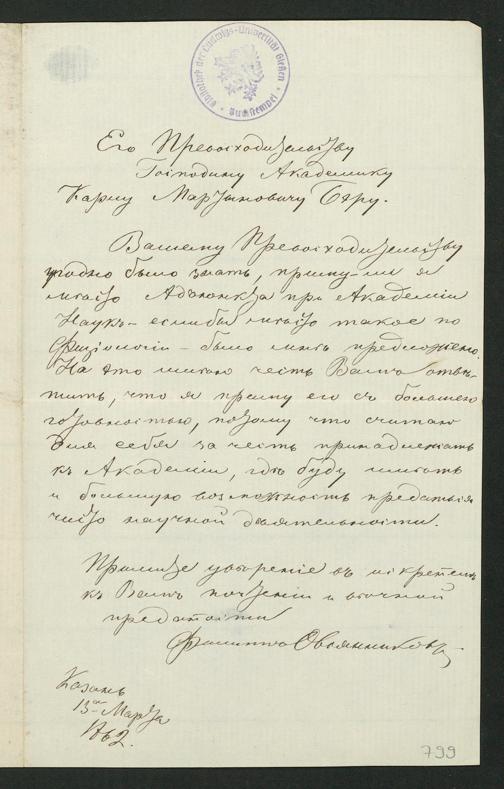 Bibliothek der Ludwigs-Universität Gießen
Buchstempel
Его Превосходительству
Господину Академику
Карлу Мартыновичу Бэру.
Вашему Превосходительству
угодно было знать, приму-ли я
место Адъюнкта при Академіи
Наукъ – если бы место такое по
Физіологіи – было мнѣ предложено.
На это имѣю честь Вамъ отвѣ-
тить, что я приму его съ большею
готовностью, потому что считаю
для себя за честь принадлежать
къ Академіи, гдѣ буду имѣть
и большую возможность предаться
чисто научной дѣятельности.
Примите увѣреніе въ искреннемъ
къ Вамъ почтеніи и
преданности
Филиппъ Овсянниковъ
Казань
13го Марта
1862.
799